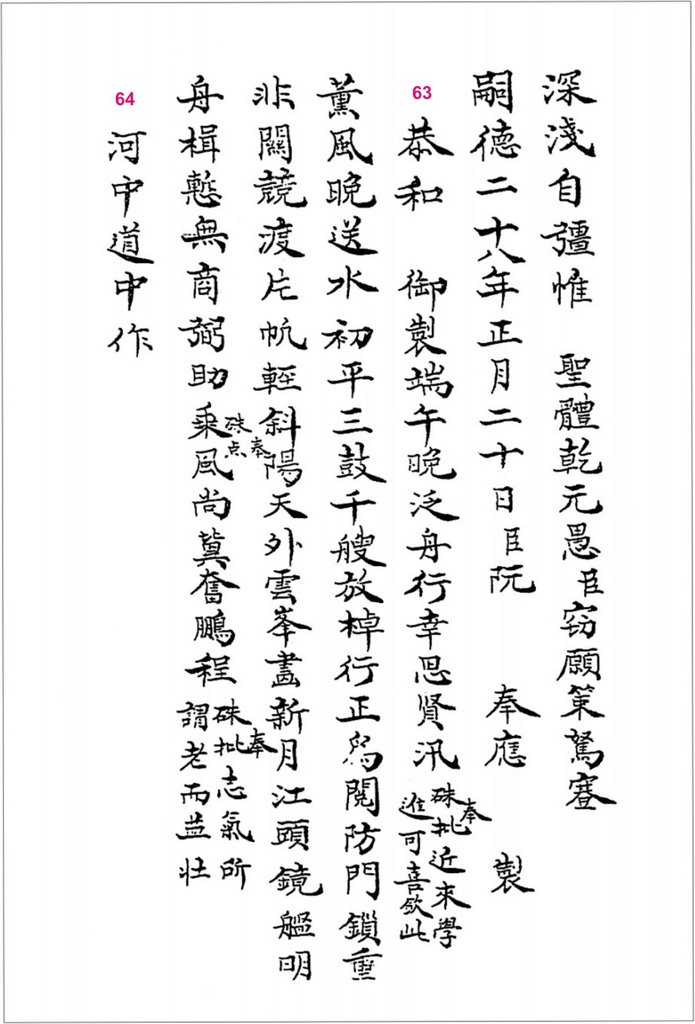 深淺自彊惟　聖體乾元愚臣窃願策駑蹇
嗣德二十八年正月二十日臣阮　奉應　製
63
恭和　御製端午晚泛舟行幸思賢汛
奉硃批近來學
進可喜欽此
薰風晚送水初平三鼓千艘放棹行正爲閱防門鎖重
非關競渡片帆輕斜陽天外雲峯畵新月江頭鏡艦明
舟楫慙無商弼助乘風尚冀奮鵬程
奉硃点
奉硃批志氣所
謂老而益壯
64
河中道中作